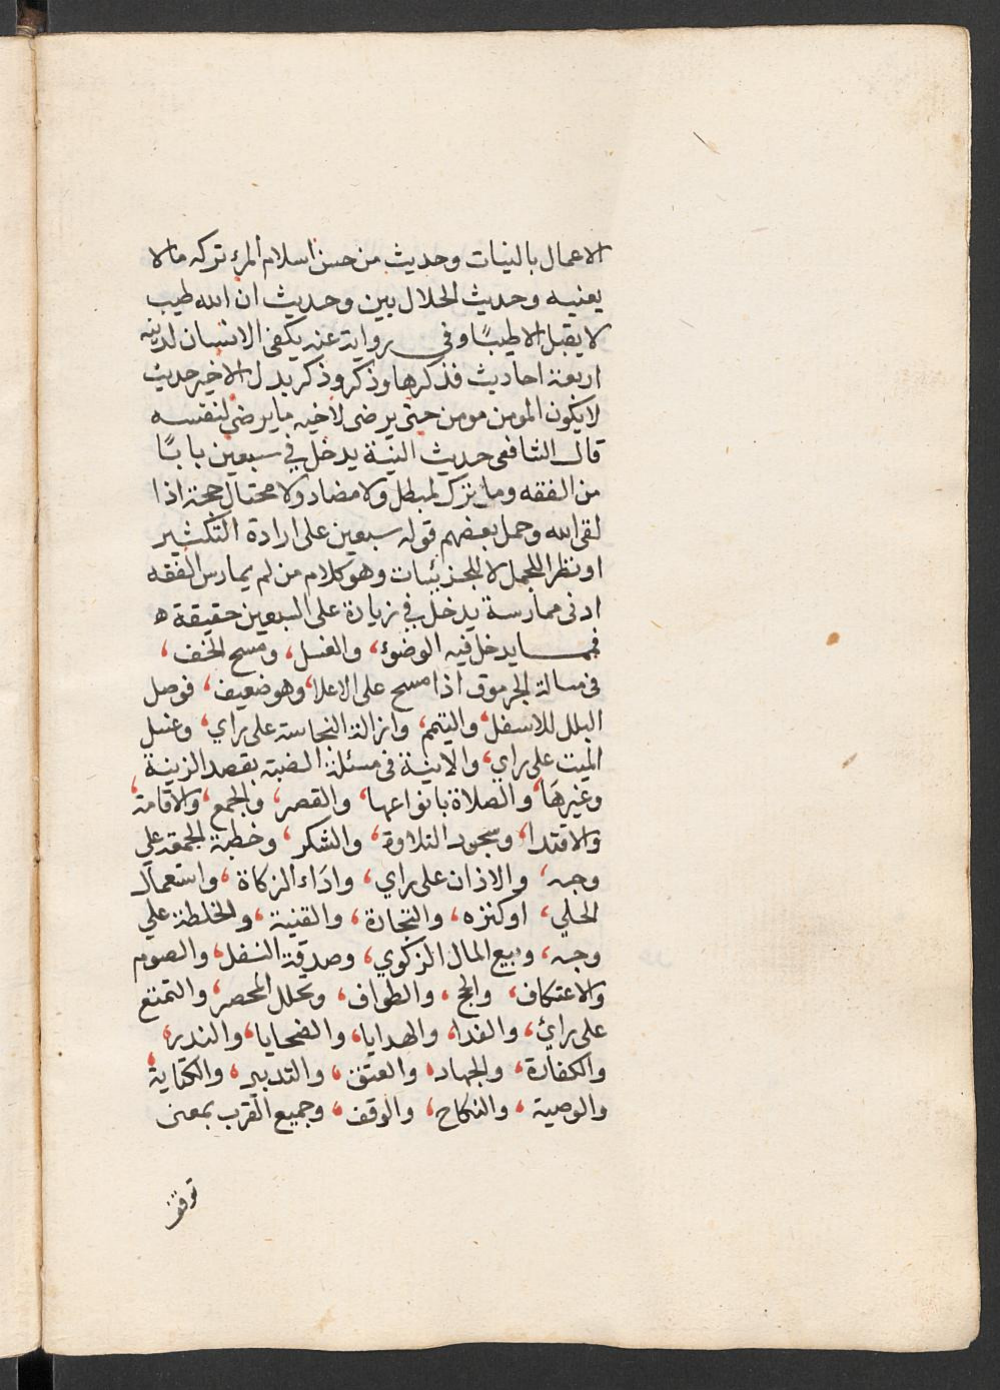 الاعمال بالنيات وحديث من حسن اسلام المرء تركه مالا
يعنيه وحديث الحلال بين وحديث ان الله طيب
لا يقبل الا طيبًا وفي رواية عنه يكفي الانسان لدينه
اربعة احاديث فذكرها وذكر وذكر بدل الاخير حديث
لا يكون المومن مومن حتى يرضى لاخيه ما يرضى لنفسه
قال الشافعي حديث النية يدخل في سبعين بابًا
من الفقه وما ترك لمبطل ولا مضاد ولا محتال حجة اذا
لقى الله وحمل بعضهم قوله سبعين على ارادة التكثير
او نظرا للجمل لا للجزئيات وهو كلام من لم يمارس الفقه
ادنى ممارسة يدخل في زيادة على السبعين حقيقة ه
فمما يدخل فيه الوضوء، والغسل، ومسح الخف،
في مسالة الجرموق اذا مسح على الاعلا، وهو ضعيف، فوصل
البلل للاسفل، والتيمم، وازالة النجاسة على راي، وغسل
الميت على راي، والانية في مسئلة الضبة بقصد الزينة
وغيرها، والصلاة بانواعها، والقصر، والجمع، والاقامة،
والاقتدا، وسجود التلاوة، والشكر، وخطبة الجمعة على
وجه، والاذان على راي، واداء الزكاة، واستعمال
الحلي، او كنزه، والتجارة، والقنية، والخلطة علي
وجه، وبيع المال الزكوي، وصدقة النفل، والصوم
والاعتكاف، والحج، والطواف، وتحلل المحصر، والتمتع
على رائ، والفدا، والهدايا، والضحايا، والندر،
والكفارة، والجهاد، والعتق، والتدبير، والكتابة،
والوصية، والنكاح، والوقف، وجميع القرب بمعنى
توقف